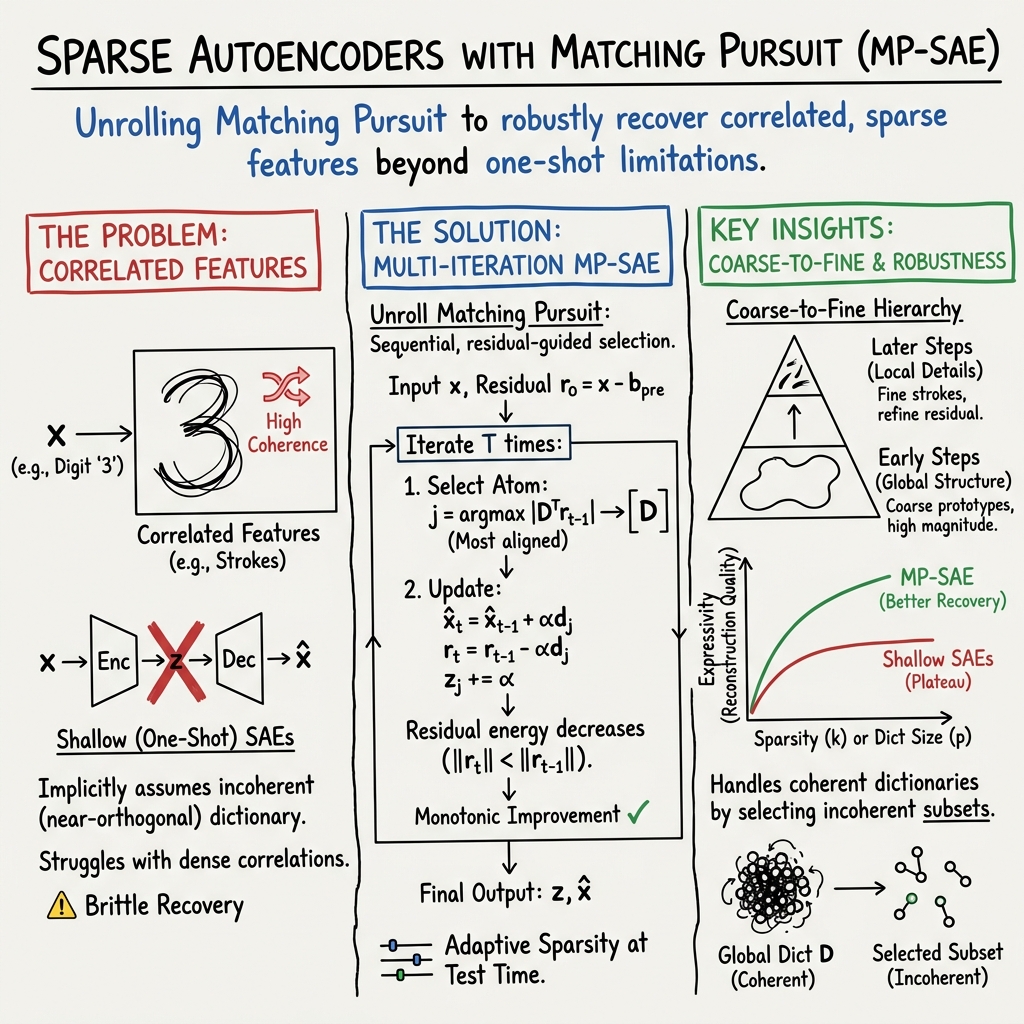 SPARSE AUTOENCODERS WITH MATCHING PURSUIT (MP-SAE)
Unrolling Matching Pursuit to robustly recover correlated, sparse
features beyond one-shot limitations.
THE PROBLEM:
CORRELATED FEATURES
x
(e.g., Digit '3')
High
Coherence
Correlated Features
(e.g., Strokes)
x → Enc → z → Dec → x̂
Shallow (One-Shot) SAEs
Implicitly assumes incoherent
(near-orthogonal) dictionary.
Struggles with dense correlations.
Brittle Recovery
THE SOLUTION:
MULTI-ITERATION MP-SAE
Unroll Matching Pursuit:
Sequential, residual-guided selection.
Input x, Residual r₀ = x - b_pre
Iterate T times:
1. Select Atom:
j = argmax |Dᵀr_{t-1}| → [D]
(Most aligned)
2. Update:
x̂_t = x̂_{t-1} + αd_j
r_t = r_{t-1} - αd_j
z_j += α
Residual energy decreases
(||r_t|| < ||r_{t-1}||).
Monotonic Improvement ✓
Final Output: z, x̂
Adaptive Sparsity at
Test Time.
KEY INSIGHTS:
COARSE-TO-FINE & ROBUSTNESS
Coarse-to-Fine Hierarchy
Later Steps
(Local Details)
Fine strokes,
refine residual.
Early Steps
(Global Structure)
Coarse prototypes,
high magnitude.
Expressivity
(Reconstruction Quality)
MP-SAE
(Better Recovery)
Shallow SAEs
(Plateau)
Sparsity (k) or Dict Size (p)
Handles coherent dictionaries
by selecting incoherent subsets.
Global Dict D
(Coherent)
Selected Subset
(Incoherent)